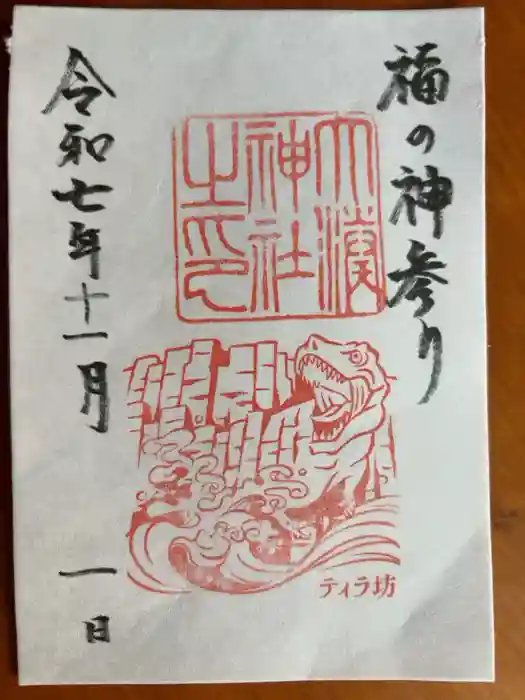 福の神参り
大湊
神社
之印
ティラ坊
令和七年十一月 一日